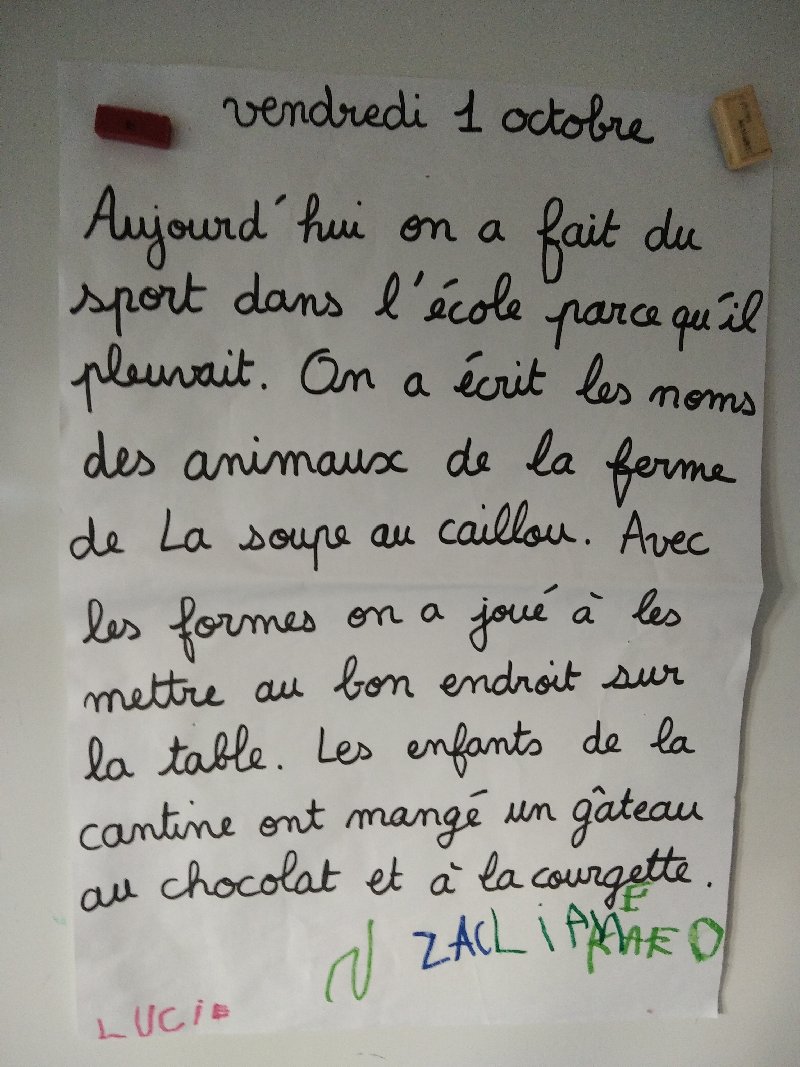 vendredi 1 octobre
Aujourd'hui on a fait du
sport dans l'école parce qu'il
pleuvait. On a écrit les noms
des animaux de la ferme
de La soupe au caillou. Avec
les formes on a joué à les
mettre au bon endroit sur
la table. Les enfants de la
cantine ont mangé un gâteau
au chocolat et à la courgette.
ZAC LiAM
LUCiE